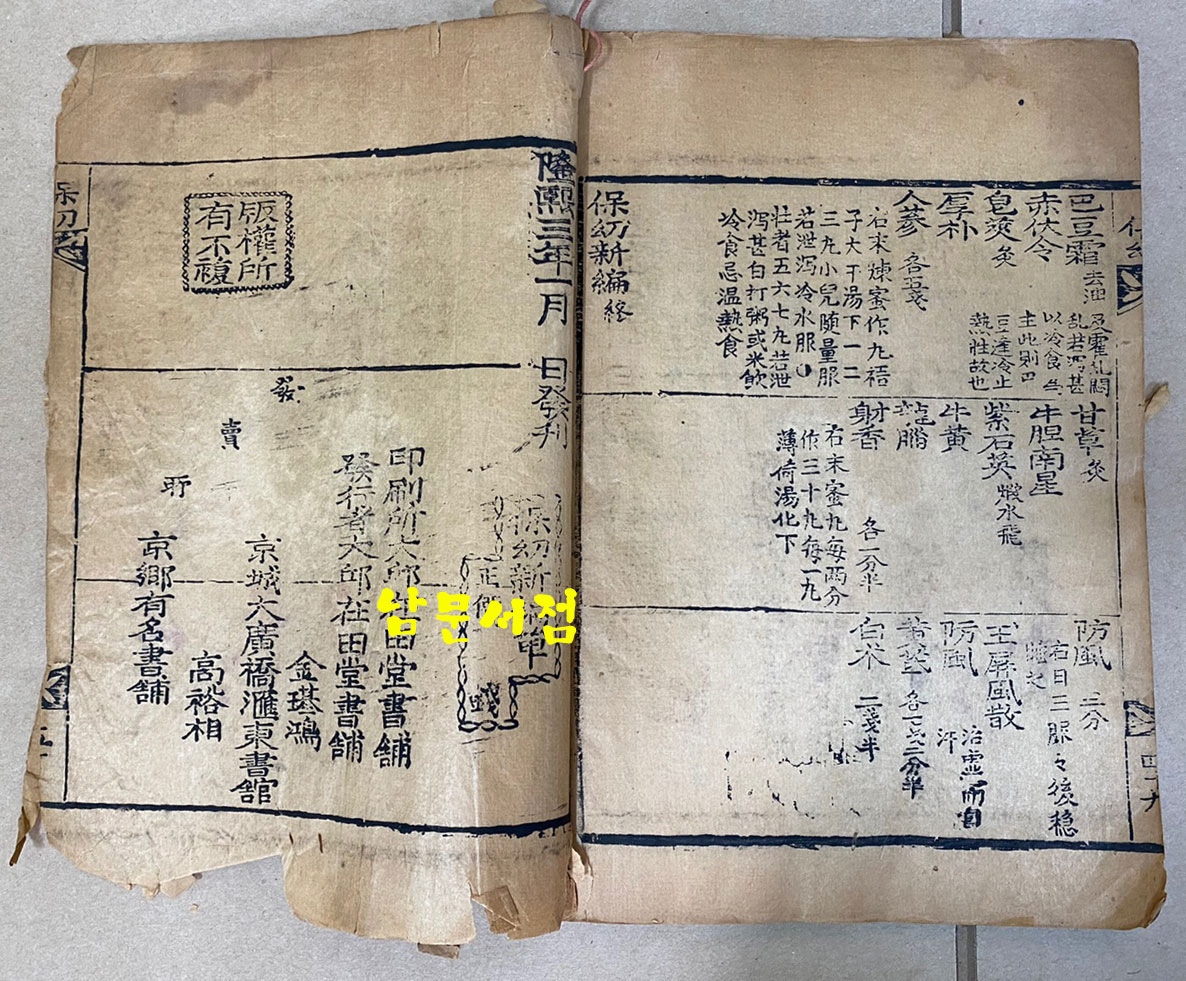 巴豆霜 去油
赤伏令
皂莢 炙
厚朴
人蔘 各五戔
右末煉蜜作丸梧
子大干湯下一二
三丸小兒随量服
若泄瀉冷水服
壮者五六七丸若泄
瀉甚白打粥或米飲
冷食忌温熱食
保幼新編終
主此則巴
豆逢冷止
熱性故也
甘草 炙
牛胆南星
紫石英 煅水飛
牛黄
龍腦
射香 各一分半
右末蜜丸每両分
作三十丸每一丸
薄荷湯化下
防風 三分
右日三服々後穏
玉屏風散 治虛而自汗
防風
黄芪 各一戔二分半
白术 二戔半
四十九
隆熙三年一月 日發刊
版權所
有不複
保幼新編單
正価
戔
印刷所大邱在田堂書舖
發行者大邱在田堂書舖
金璂鴻
發賣所
京城大廣橋滙東書舘
高裕相
京鄉有名書舖
保幼
남문서점